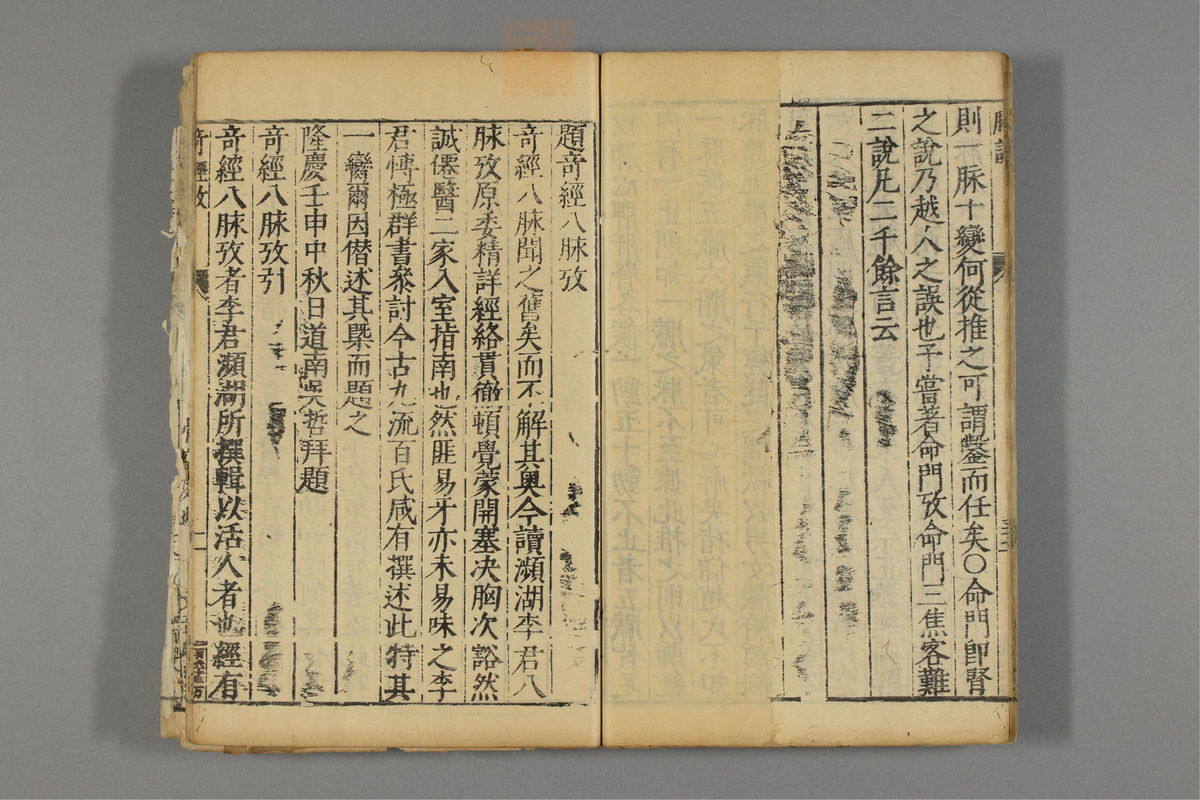 則一脉十變何從推之可謂鑿而任矣〇命門即腎
之說乃越人之誤也予嘗著命門攷命門三焦客難
二說凡二千餘言云
題竒經八脉攷
竒經八脉聞之舊矣而不解其奥今讀瀕湖李君八
脉攷原委精詳經絡貫徹頓覺蒙開塞决胸次豁然
誠僊醫二家入室指南也然匪易牙亦未易味之李
君愽極群書叅討今古九流百氏咸有撰述此特其
一臠爾因僣述其槩而題之
隆慶壬申中秋日道南吳哲拜題
竒經八脉攷引
竒經八脉攷者李君瀕湖所撰輯以活人者也經有
竒經攷